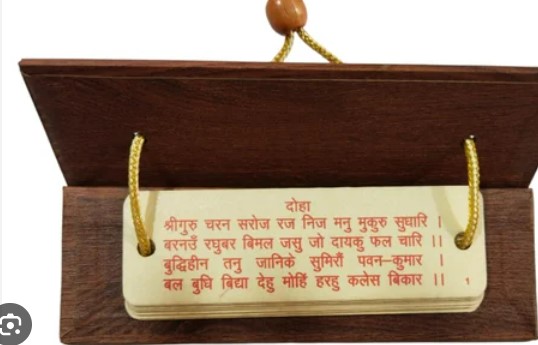 दोहा
श्रीगुरु चरन सरोज रज निज मनु मुकुरु सुधारि ।
बरनउँ रघुबर बिमल जसु जो दायकु फल चारि ।।
बुद्धिहीन तनु जानिके सुमिरौं पवन–कुमार ।
बल बुधि बिद्या देहु मोहिं हरहु कलेस बिकार ।। १